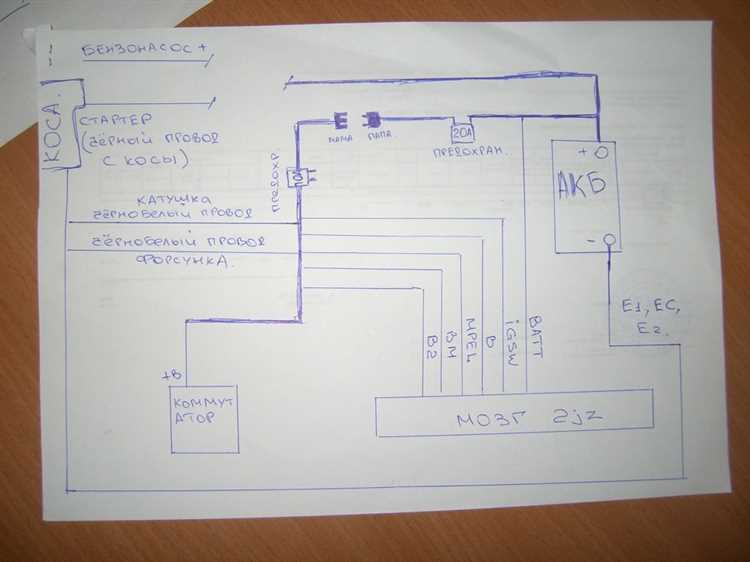 БЕНЗОНАСОС +
КОСА.
СТАРТЕР
(ЧЁРНЫЙ ПРОВОД
С КОСЫ)
МАМА
ПАПА
20А
ПРЕДОХРАН.
+
АКБ
-
ПРЕДОХР.
10А
КАТУШКА
ЧЁРНОБЕЛЫЙ ПРОВОД
ЧЁРНОБЕЛЫЙ ПРОВОД
ФОРСУНКА.
E1, EC,
E2.
B2
BM
MPEL
B
iGSW
BATT
+B
КОММУТ
АТОР
МОЗГ 2jz